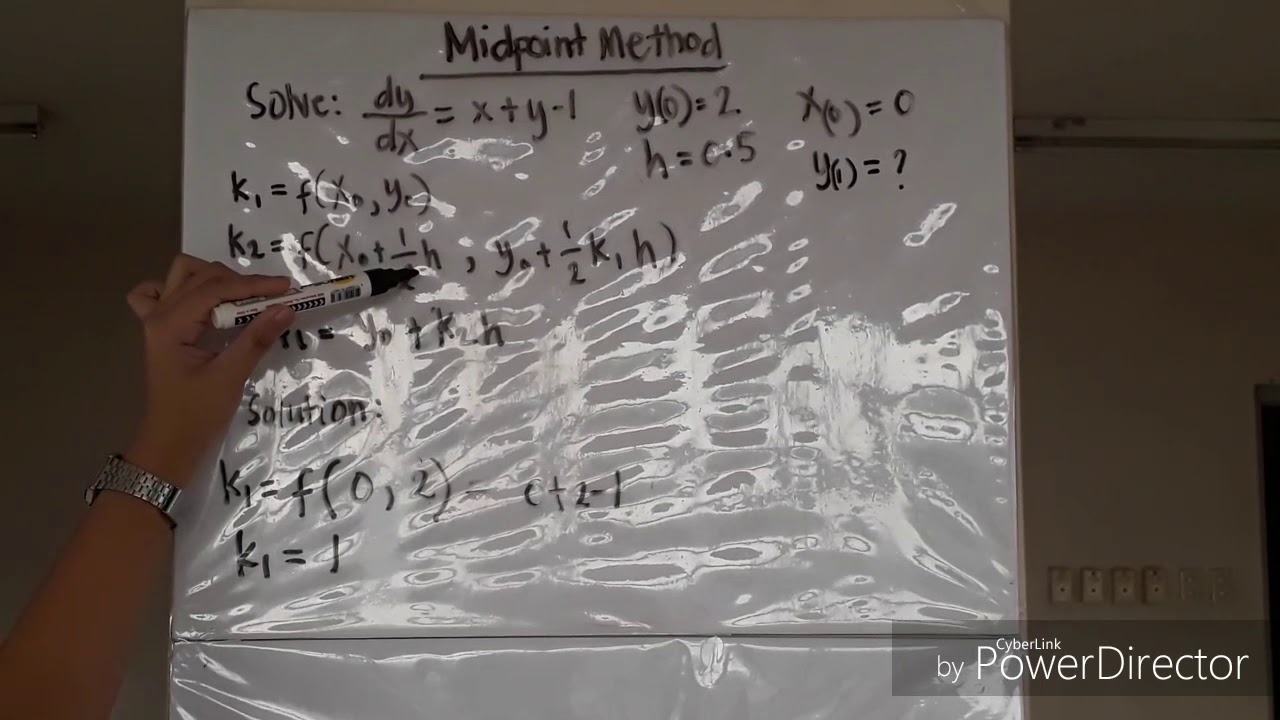 Midpoint Method
Solve: dy/dx = x+y-1 y(0)=2 x(0)=0
h=0.5 y(1)=?
k₁=f(x₀,y₀)
k₂=f(x₀+½h, y₀+½k₁h)
= y₀+k₂h
Solution:
k₁=f(0,2)= 0+2-1
k₁=1
CyberLink
by PowerDirector